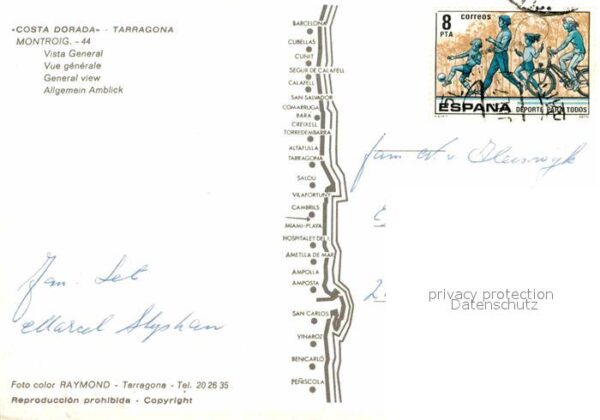 «COSTA DORADA» - TARRAGONA
MONTROIG. - 44
Vista General
Vue générale
General view
Allgemein Amblick
BARCELONA
CUBELLAS
CUNIT
SEGUR DE CALAFELL
CALAFELL
SAN SALVADOR
COMARRUGA
BARA
CREIXELL
TORREDEMBARRA
ALTAFULLA
TARRAGONA
SALOU
VILAFORTUNY
CAMBRILS
MIAMI-PLAYA
HOSPITALET DEL I.
AMETLLA DE MAR
AMPOLLA
AMPOSTA
SAN CARLOS
VINAROZ
BENICARLÓ
PEÑISCOLA
8 correos
PTA
ESPAÑA DEPORTE PARA TODOS
Fam
privacy protection
Datenschutz
Fam.
Marcel
Foto color RAYMOND - Tarragona - Tel. 20 26 35
Reproducción prohibida - Copyright